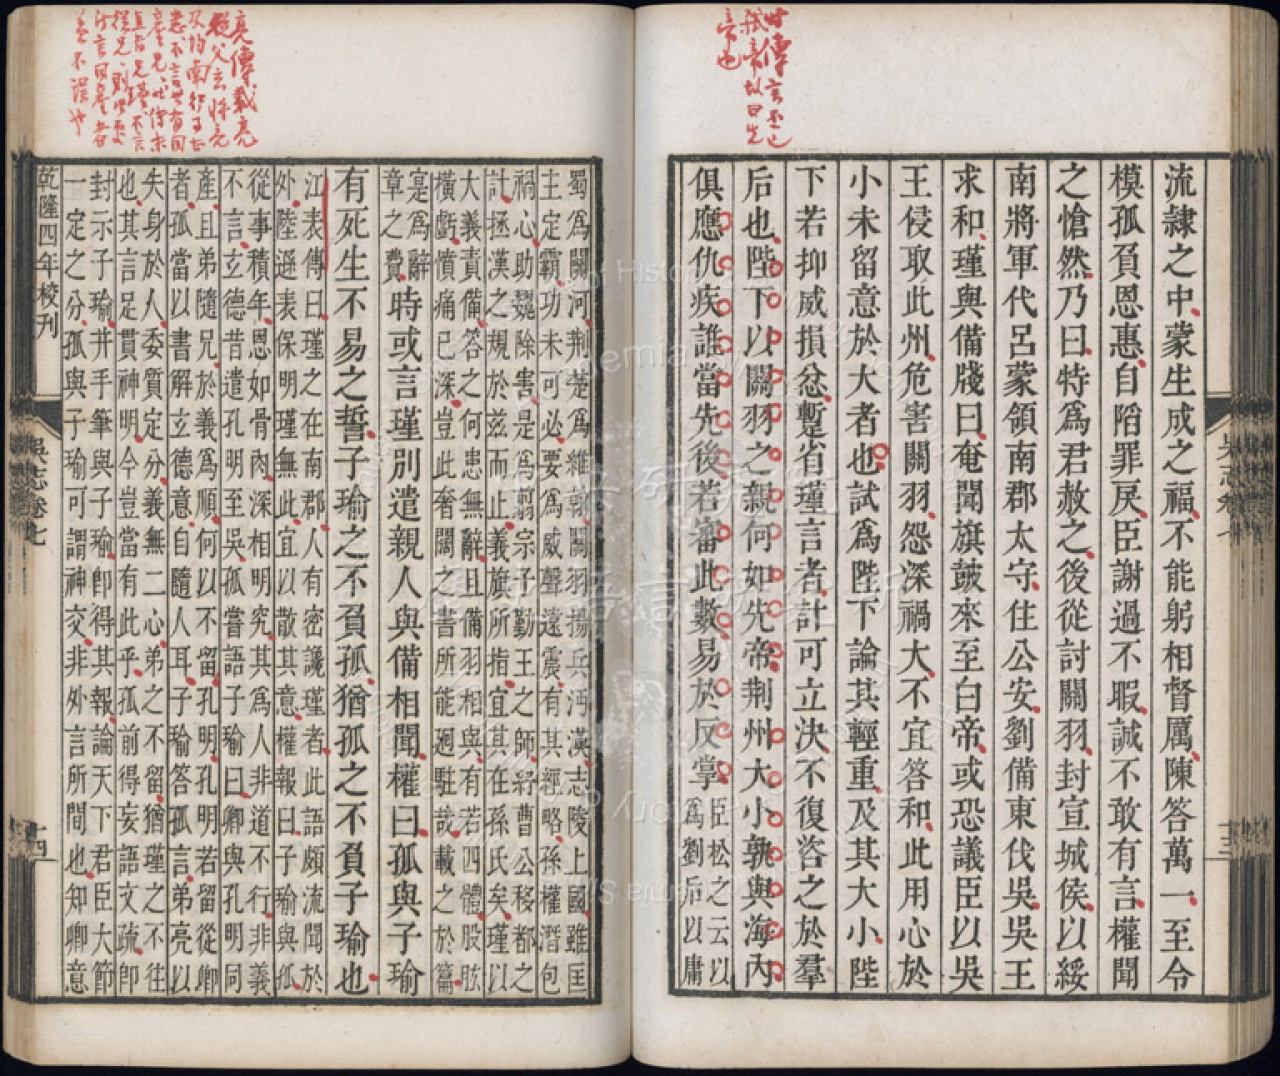 傳言丕已
弒帝故曰先
帝也
流隸之中蒙生成之福不能躬相督厲陳答萬一至令
模孤負恩惠自陷罪戾臣謝過不暇誠不敢有言權聞
之愴然乃曰特爲君赦之後從討關羽封宣城侯以綏
南將軍代呂蒙領南郡太守住公安劉備東伐吳吳王
求和瑾與備牋曰奄聞旗鼓來至白帝或恐議臣以吳
王侵取此州危害關羽怨深禍大不宜答和此用心於
小未留意於大者也試爲陛下論其輕重及其大小陛
下若抑威損忿蹔省瑾言者計可立決不復咨之於羣
后也陛下以關羽之親何如先帝荆州大小孰與海內
俱應仇疾誰當先後若審此數易於反掌
臣松之云以
爲劉后以庸
吳志卷七
十三
亮傳載亮
從父玄將亮
及均南行
蜀爲關河荆楚爲維翰關羽揚兵沔漢志陵上國雖匡
主定霸功未可必要爲威聲遠震有其經略孫權潛包
禍心助魏除害是爲翦宗子勤王之師紓曹公移都之
計拯漢之規於茲而止義旗所指宜其在孫氏矣瑾以
大義責備答之何患無辭且備羽相與有若四體股肱
橫虧憤痛已深豈此奢闊之書所能迴駐哉載之於篇
寔爲辭
章之費
時或言瑾別遣親人與備相聞權曰孤與子瑜
有死生不易之誓子瑜之不負孤猶孤之不負子瑜也
江表傳曰瑾之在南郡人有密讒瑾者此語頗流聞於
外陸遜表保明瑾無此宜以散其意權報曰子瑜與孤
從事積年恩如骨肉深相明究其爲人非道不行非義
不言玄德昔遣孔明至吳孤嘗語子瑜曰卿與孔明同
產且弟隨兄於義爲順何以不留孔明孔明若留從卿
者孤當以書解玄德意自隨人耳子瑜答孤言弟亮以
失身於人委質定分義無二心弟之不留猶瑾之不往
也其言足貫神明今豈當有此乎孤前得妄語文疏即
封示子瑜并手筆與子瑜即得其報論天下君臣大節
一定之分孤與子瑜可謂神交非外言所間也知卿意
乾隆四年校刊
吳志卷七
十四